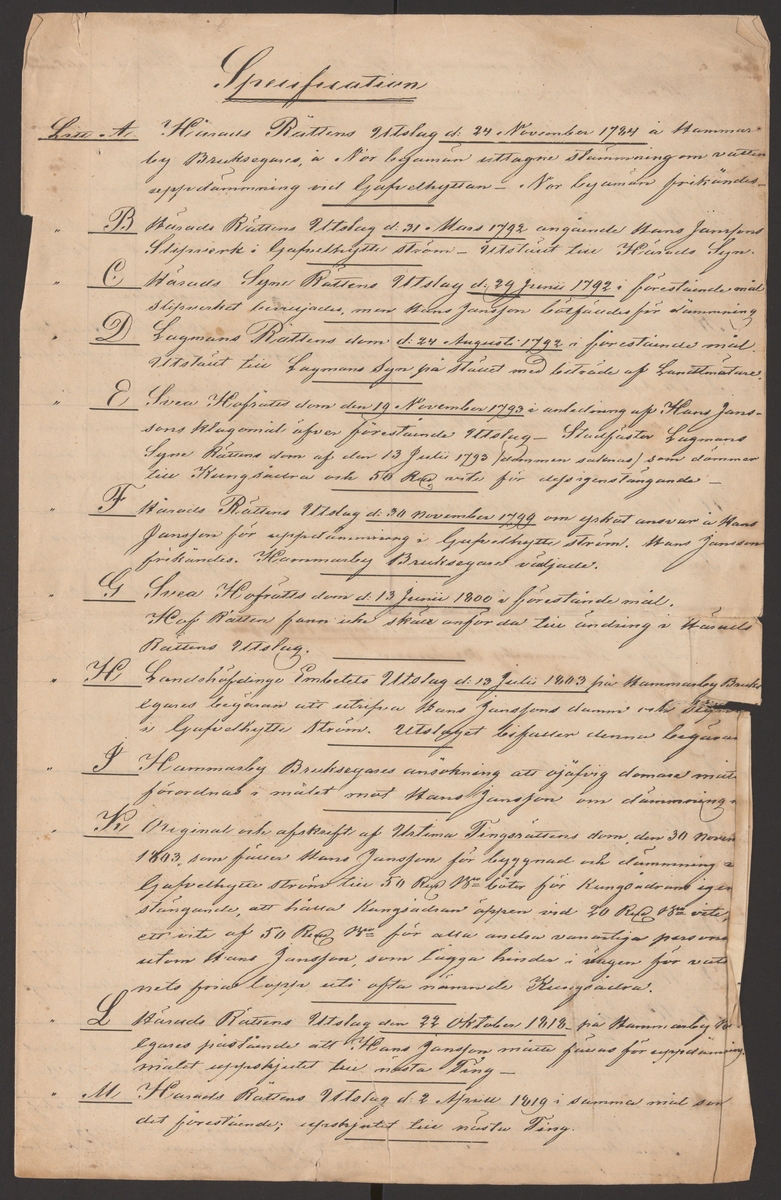 Specification
Litt A Härads Rättens Utslag d: 24 November 1784 å Hammar-
by Bruksegares, å Nor byamän uttagne stämning om vatten
uppdämmning vid Gafvelhyttan – Nor byamän frikändes –
" B Härads Rättens Utslag d: 31 Mars 1792 angående Hans Jansons
Slipverk i Gafvelhytte ström – Utstäldt till Härads Syn.
" C Härads Syne Rättens Utslag d: 29 Junii 1792 i förestående mål
slipverket beviljades, men Hans Jansson bötfälldes för dämmning
" D Lagmans Rättens dom d: 24 Augusti 1792 i förestående mål.
Utstäldt till Lagmans Syn på stället med beträde af Landtmätare.
" E Svea Hofrätts dom den 19 November 1793 i anledning af Hans Jans-
sons klagomål öfver förestående Utslag – Stadfäster Lagmans
Syne Rättens dom af den 13 Julii 1793 (dommen saknas) som dömmer
till Kungsådra och 50 Rd vite för dess igenstängande –
" F Härads Rättens Utslag d: 30 November 1799 om yrkat ansvar å Hans
Jansson för uppdämmning i Gafvelhytte ström. Hans Jansson
frikändes. Hammarby Bruksegare vädjade.
" G Svea Hofrätts dom d: 13 Junii 1800 i förestånde mål.
Hof Rätten fann icke skäl anförda till ändring i Härads
Rättens Utslag.
" H Landshöfdinge Embetets Utslag d: 13 Julii 1803 på Hammarby Bruks
egares begäran att utrifva Hans Janssons damm och
i Gafvelhytte Ström. Utslaget bifaller denna begäran
" J Hammarby Bruksegares ansökning att ojäfvig domare måtte
förordnas i målet mot Hans Jansson om dämmning i
" K Original och afskrift af Urtima Tingsrättens dom, den 30 Novem
1803, som fäller Hans Jansson för byggnad och dämmning i
Gafvelhytte ström till 50 Rd Bco böter för Kungsådrans igen
stängande, att hålla Kungsådran öppen vid 20 Rd Bco vite,
ett vite af 50 Rd Bco för alla andra vanartiga persone
utom Hans Jansson, som lägga hinder i vägen för vatt
nets fria lopp uti ofta nämnde Kungsådra.
" L Härads Rättens Utslag den 22 Oktober 1818 – på Hammarby Br
egares påstående att Hans Jansson måtte fällas för uppdämning.
målet uppskjutet till nästa Ting –
" M Härads Rättens Utslag d: 2 April 1819 i samma mål som
det förestående; uppskjutet till nästa Ting.